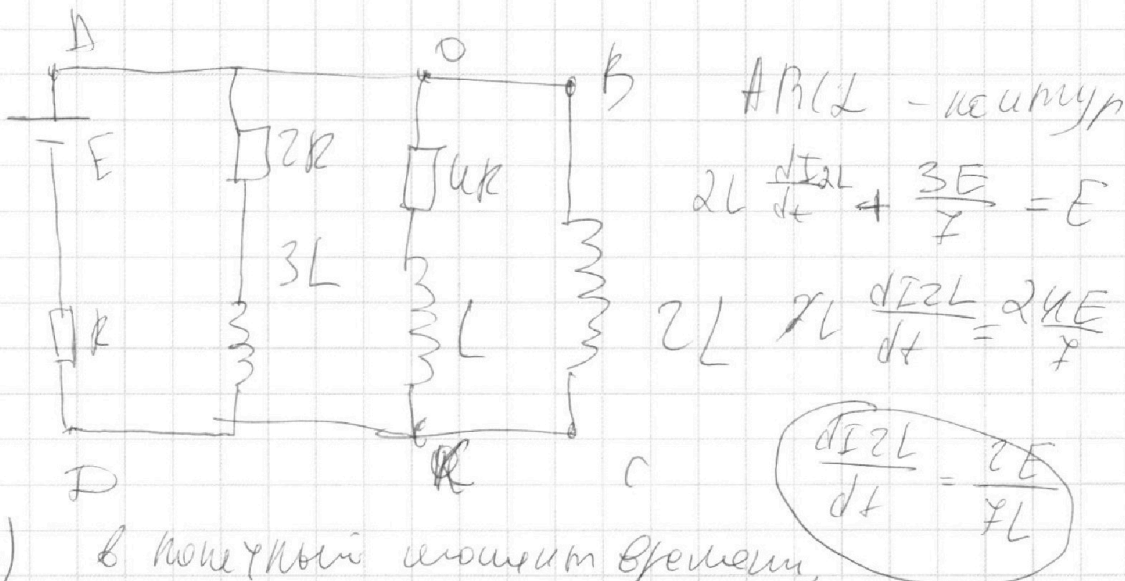 A O B
E 2R 4R
3L
R L 2L
D K C
ABCD - контур
2L dI2L/dt + 3E/7 = E
2L dI2L/dt = 4E/7
dI2L/dt = 2E/7L
) в конечный момент времени,